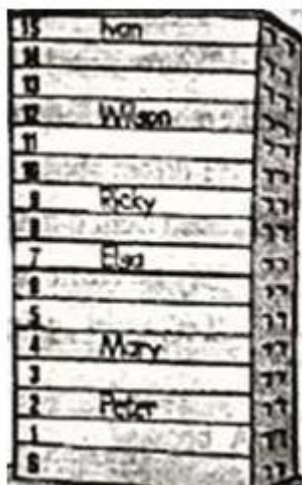 15 Ivan
14
13
12 Wilson
11
10
9 Ricky
8
7 Elsa
6
5
4 Mary
3
2 Peter
1
G